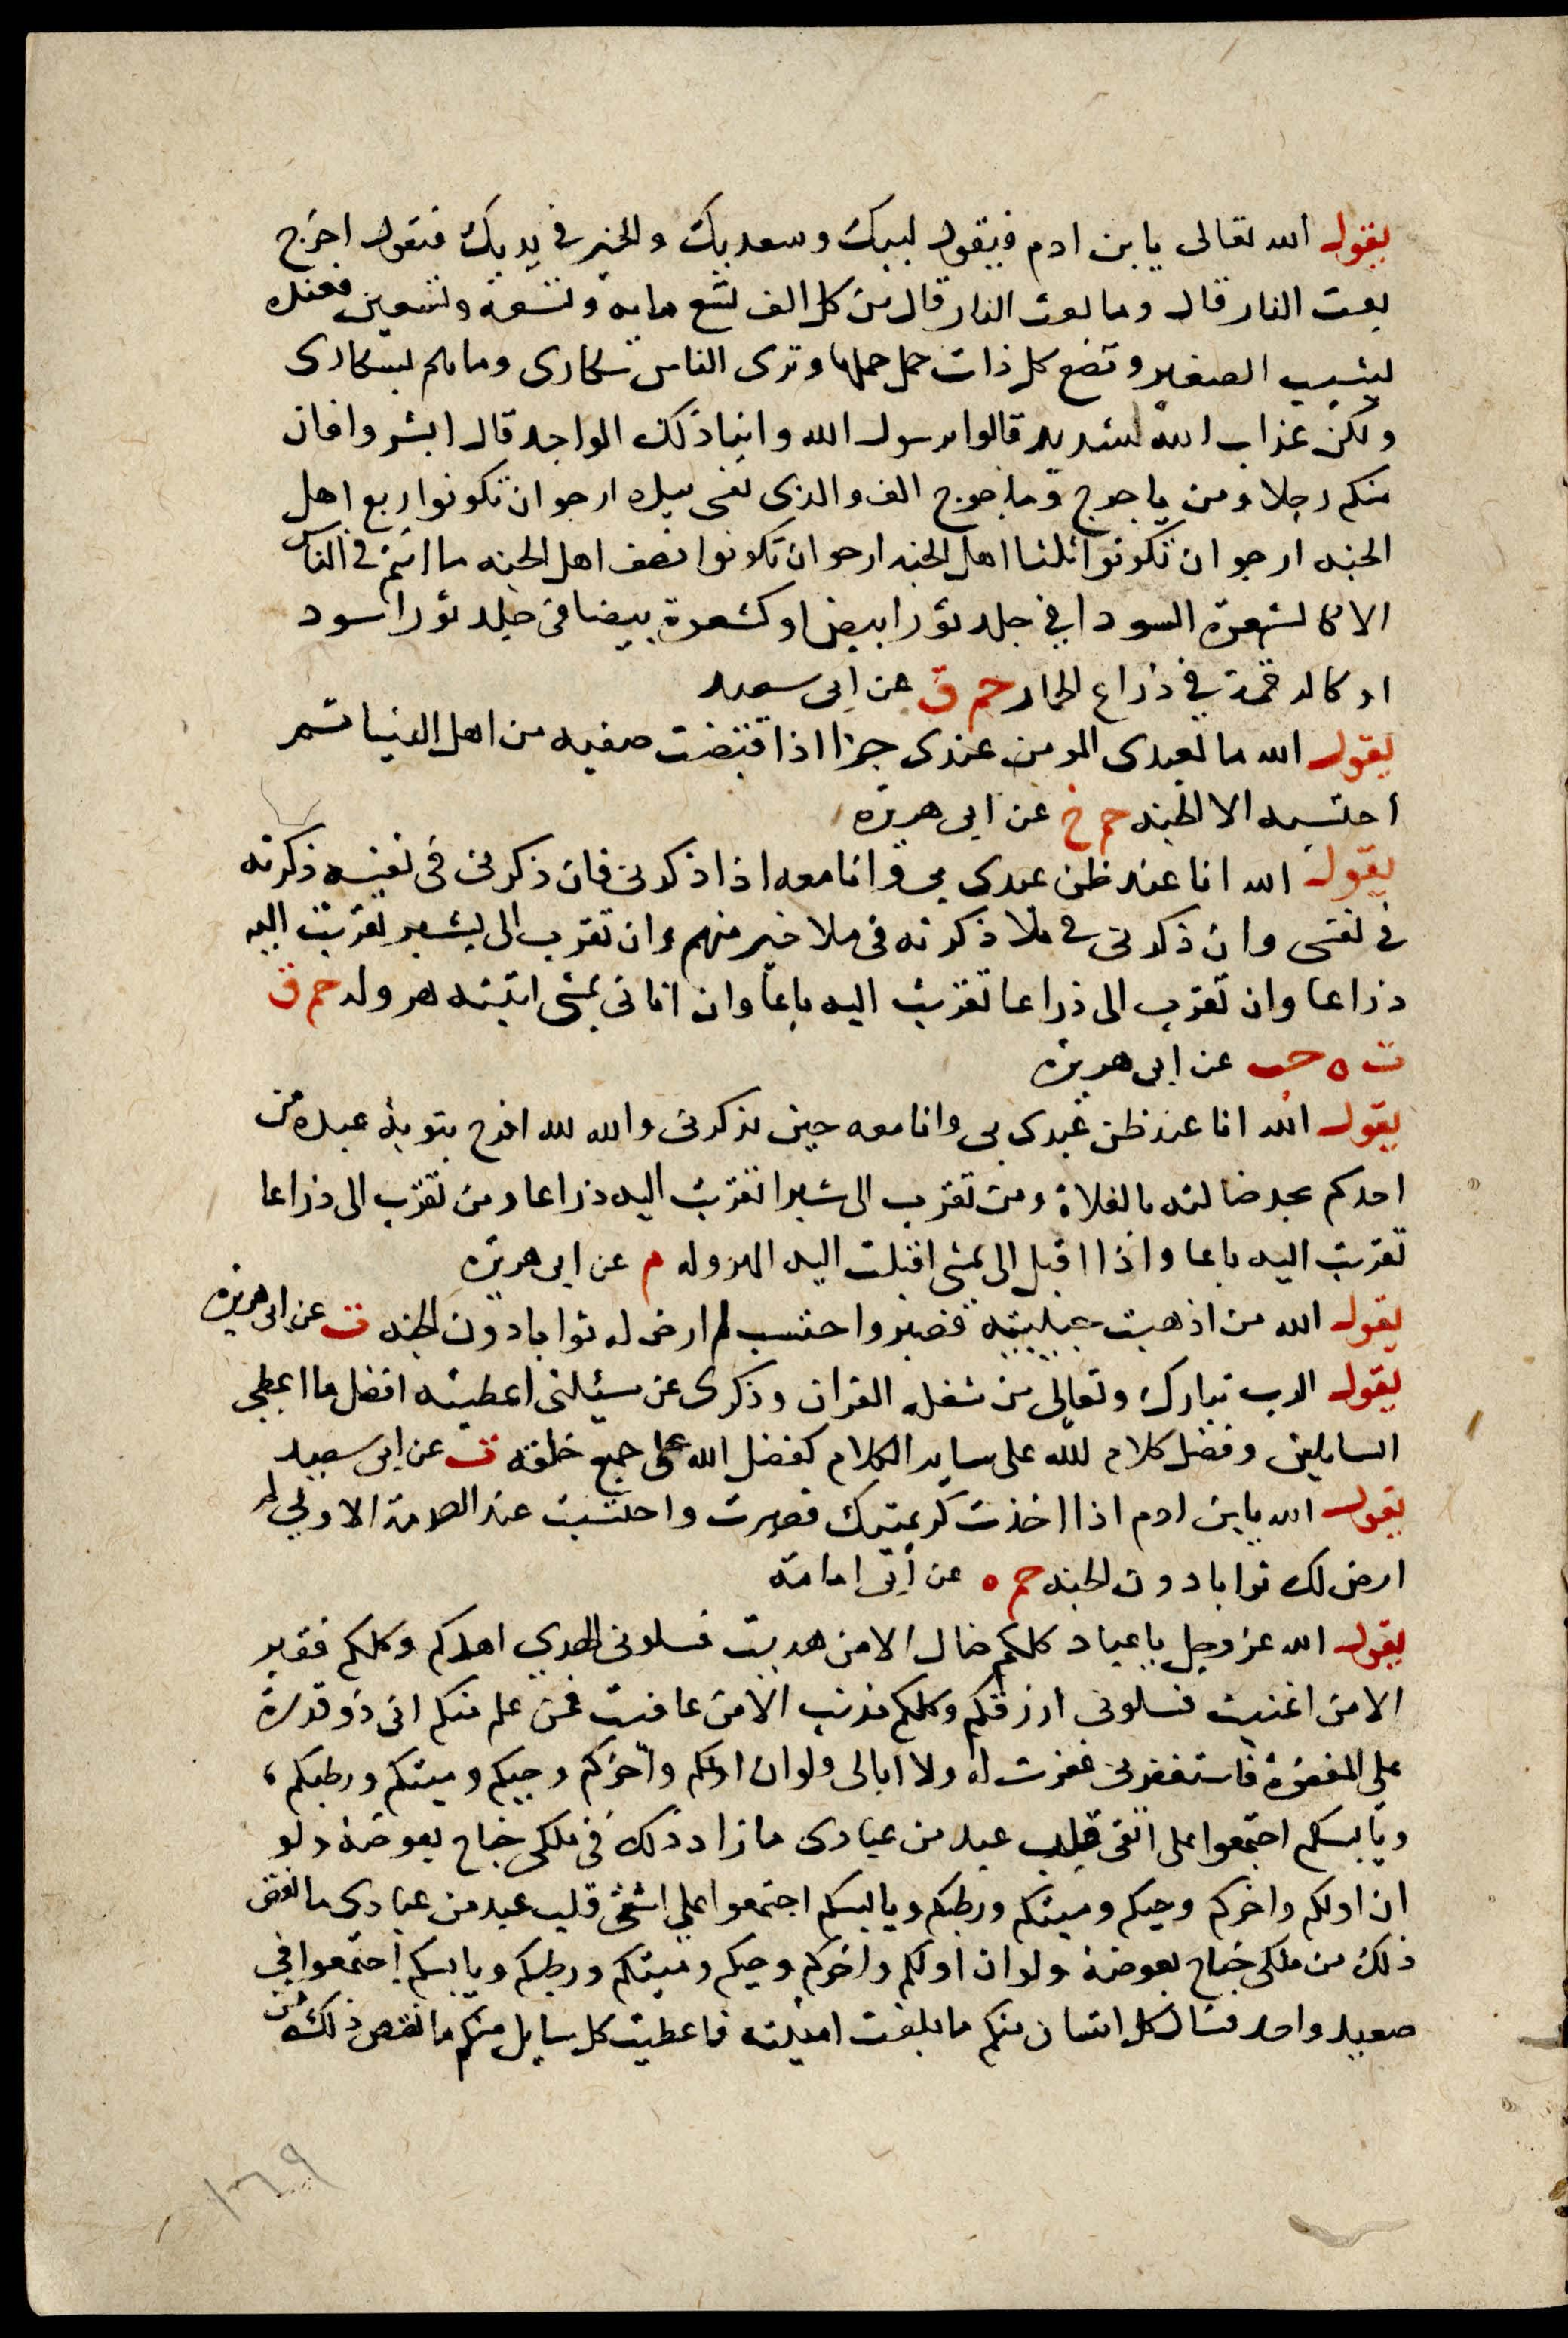 يقول الله تعالى يا بن ادم فيقول لبيك وسعديك والخير في يديك فيقول اخرج
بعث النار قال وما بعث النار قال من كل الف تسع مايه وتسعة وتسعين فعنده
يشيب الصغير وتضع كل ذات حمل حملها وترى الناس سكارى وما هم بسكارى
ولكن عذاب الله شديد قالوا يرسول الله واينا ذلك الواحد قال ابشروا فان
منكم رجلا ومن ياجوج وماجوج الف والذي نفسي بيده ارجو ان تكونوا ربع اهل
الجنه ارجو ان تكونوا ثلث اهل الجنه ارجو ان تكونوا نصف اهل الجنه ما انتم في الناس
الا كالشعرة السودا في جلد ثور ابيض او كشعرة بيضا في جلد ثور اسود
او كالرقمة في ذراع الحمار حم ق عن ابي سعيد
يقول الله ما لعبدي المومن عندي جزا اذا قبضت صفيه من اهل الدنيا ثم
احتسبه الا الجنه حم خ عن ابي هريره
يقول الله انا عند ظن عبدي بي وانا معه اذا ذكرني فان ذكرني في نفسه ذكرته
في نفسي وان ذكرني في ملا ذكرته في ملا خير منهم وان تقرب الى بشبر تقربت اليه
ذراعا وان تقرب الى ذراعا تقربت اليه باعا وان اتاني يمشي اتيته هروله حم ق
ت ه حب عن ابي هريره
يقول الله انا عند ظن عبدي بي وانا معه حين يذكرني والله لله افرح بتوبة عبده من
احدكم يجد ضالته بالفلاة ومن تقرب الى شبرا تقربت اليه ذراعا ومن تقرب الى ذراعا
تقربت اليه باعا واذا اقبل الى يمشي اقبلت اليه الهروله م عن ابي هريره
يقول الله من اذهبت حبيبتيه فصبر واحتسب لم ارض له ثوابا دون الجنه ت عن ابي هريره
يقول الرب تبارك وتعالى من شغله القران وذكرى عن مسيلتى اعطيته افضل ما اعطي
السايلين وفضل كلام الله على ساير الكلام كفضل الله على جميع خلقه ت عن ابي سعيد
يقول الله يا بن ادم اذا اخذت كريمتيك فصبرت واحتسبت عند الصدمة الاولى لم
ارض لك ثوابا دون الجنه حم ه عن ابي امامة
يقول الله عز وجل يا عباد كلكم ضال الا من هديت فسلوني الهدي اهدكم وكلكم فقير
الا من اغنيت فسلوني ارزقكم وكلكم مذنب الا من عافيت فمن علم منكم اني ذو قدرة
على المغفرة فاستغفرني غفرت له ولا ابالي ولو ان اولكم واخركم وحيكم وميتكم ورطبكم
ويابسكم اجتمعوا على اتقى قلب عبد من عبادى ما زاد ذلك في ملكى جناح بعوضة ولو
ان اولكم واخركم وحيكم وميتكم ورطبكم ويابسكم اجتمعوا على اشقى قلب عبد من عبادى ما نقص
ذلك من ملكى جناح بعوضة ولو ان اولكم واخركم وحيكم وميتكم ورطبكم ويابسكم اجتمعوا في
صعيد واحد فسال كل انسان منكم ما بلغت امنيته فاعطيت كل سايل منكم ما نقص ذلك من
١٦٩